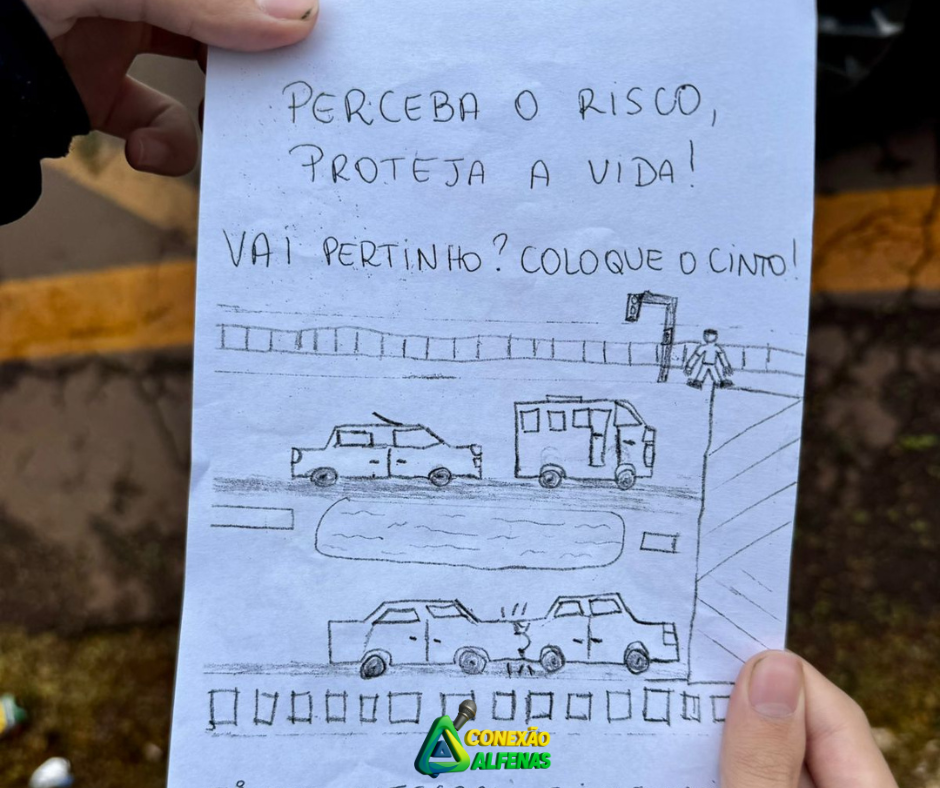 PERCEBA O RISCO,
PROTEJA A VIDA!
VAI PERTINHO? COLOQUE O CINTO!
CONEXÃO
ALFENAS